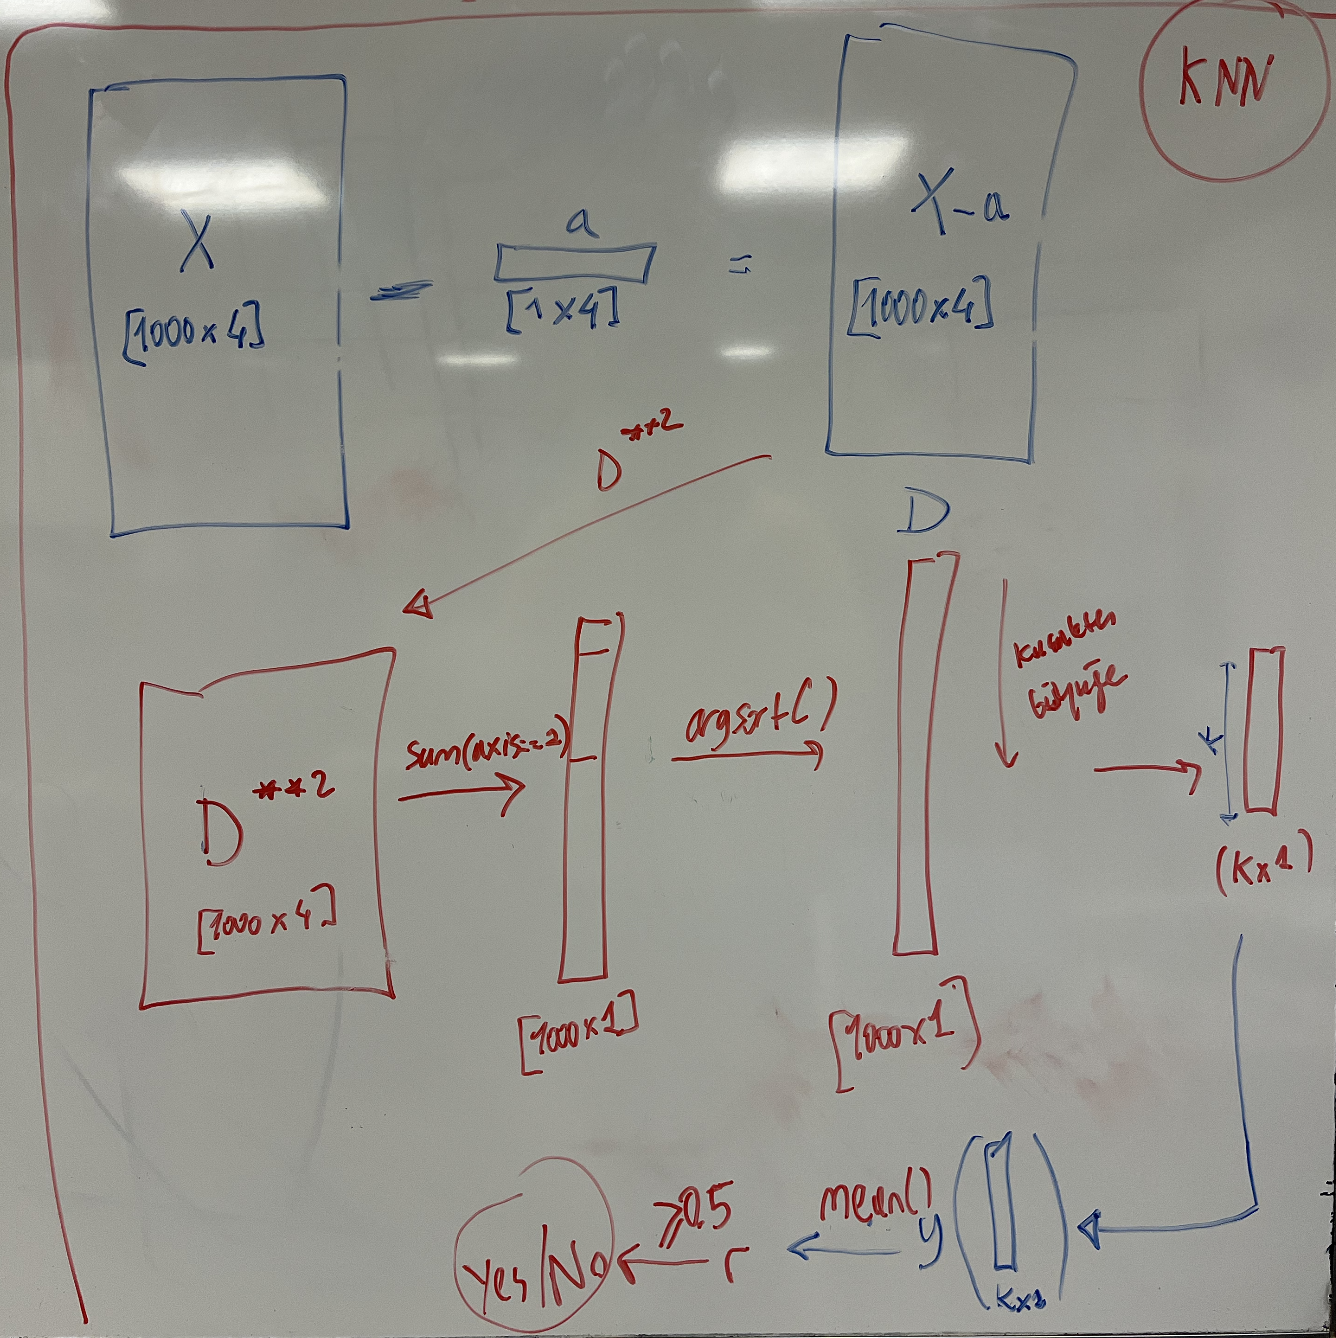 KNN
X
[1000x4]
-
a
[1x4]
=
X-a
[1000x4]
D
D**2
D**2
[1000x4]
sum(axis=2)
[1000x1]
argsort()
[1000x1]
K
(Kx1)
y
Kx1
mean()
r
≥0.5
Yes/No